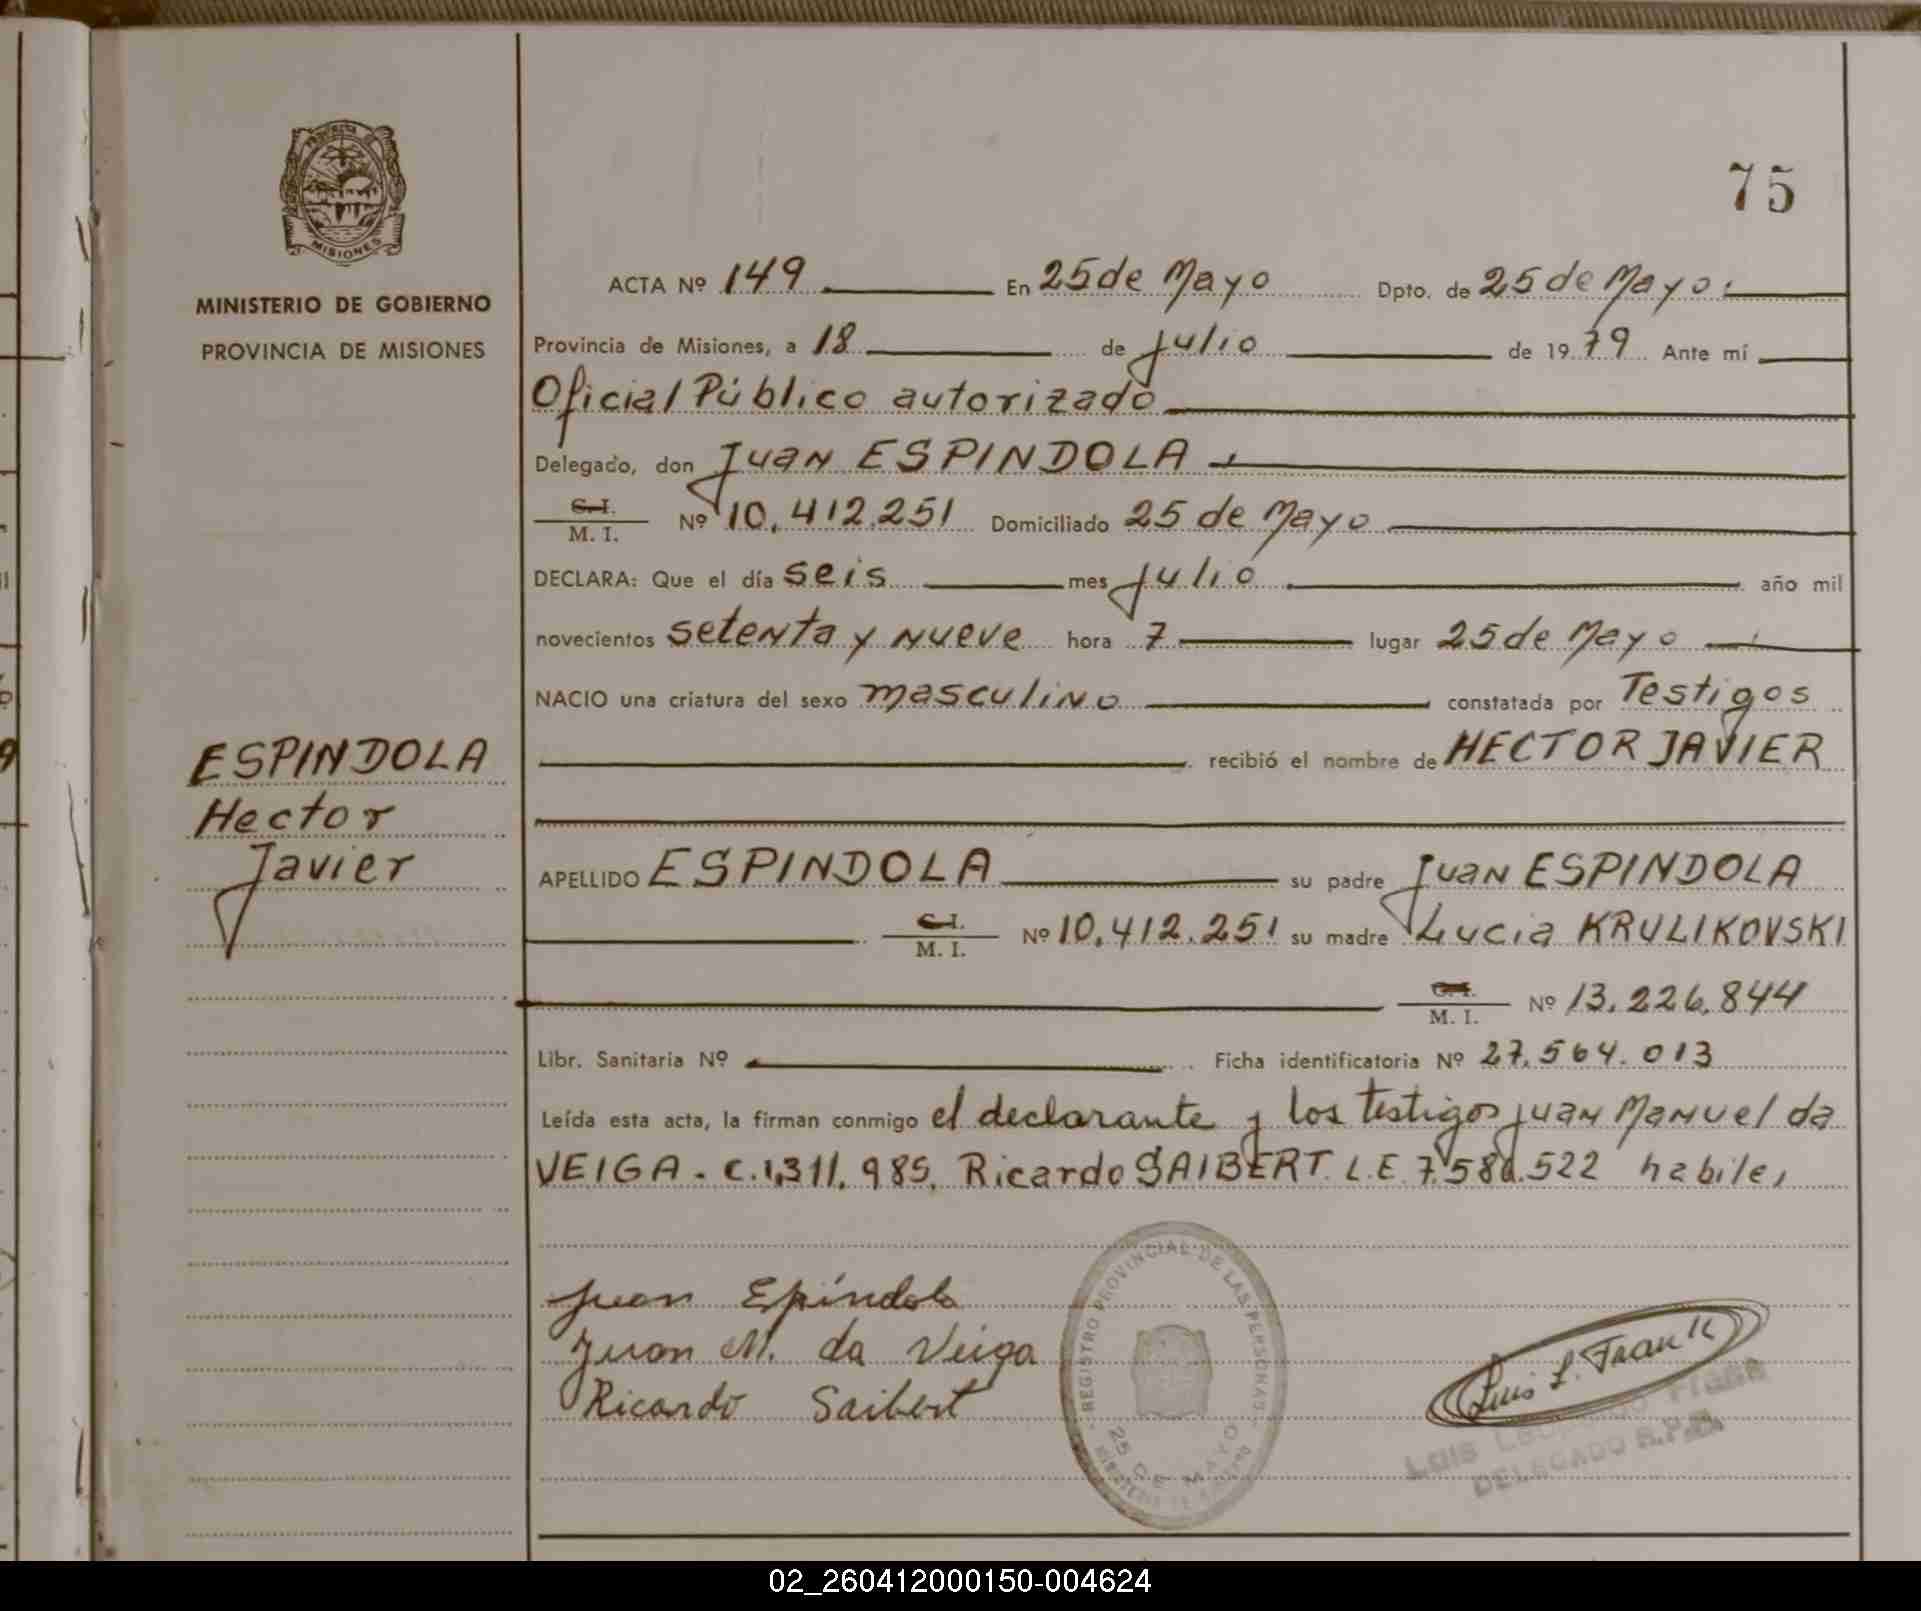 PROVINCIA DE
MISIONES
MINISTERIO DE GOBIERNO
PROVINCIA DE MISIONES
75
ACTA Nº 149 En 25 de Mayo Dpto. de 25 de Mayo.
Provincia de Misiones, a 18 de julio de 1979 Ante mí
Oficial Público autorizado
Delegado, don Juan ESPINDOLA
C. I.
M. I. Nº 10.412.251 Domiciliado 25 de Mayo
DECLARA: Que el día seis mes julio año mil
novecientos setenta y nueve hora 7 lugar 25 de Mayo
NACIO una criatura del sexo masculino constatada por Testigos
recibió el nombre de HECTOR JAVIER
ESPINDOLA
Hector
Javier
APELLIDO ESPINDOLA su padre Juan ESPINDOLA
C. I.
M. I. Nº 10.412.251 su madre Lucia KRULIKOVSKI
C. I.
M. I. Nº 13.226.844
Libr. Sanitaria Nº Ficha identificatoria Nº 27.564.013
Leída esta acta, la firman conmigo el declarante y los testigos Juan Manuel da
VEIGA. C.1.311.985. Ricardo SAIBERT. L.E. 7.580.522 habiles
Juan Epíndola
Juan M. da Veiga
Ricardo Saibert
REGISTRO PROVINCIAL DE LAS PERSONAS
25 DE MAYO
MINISTERIO DE GOBIERNO
Luis L. Frank
LUIS LEOPOLDO FRANK
DELEGADO R.P.P.
02_260412000150-004624